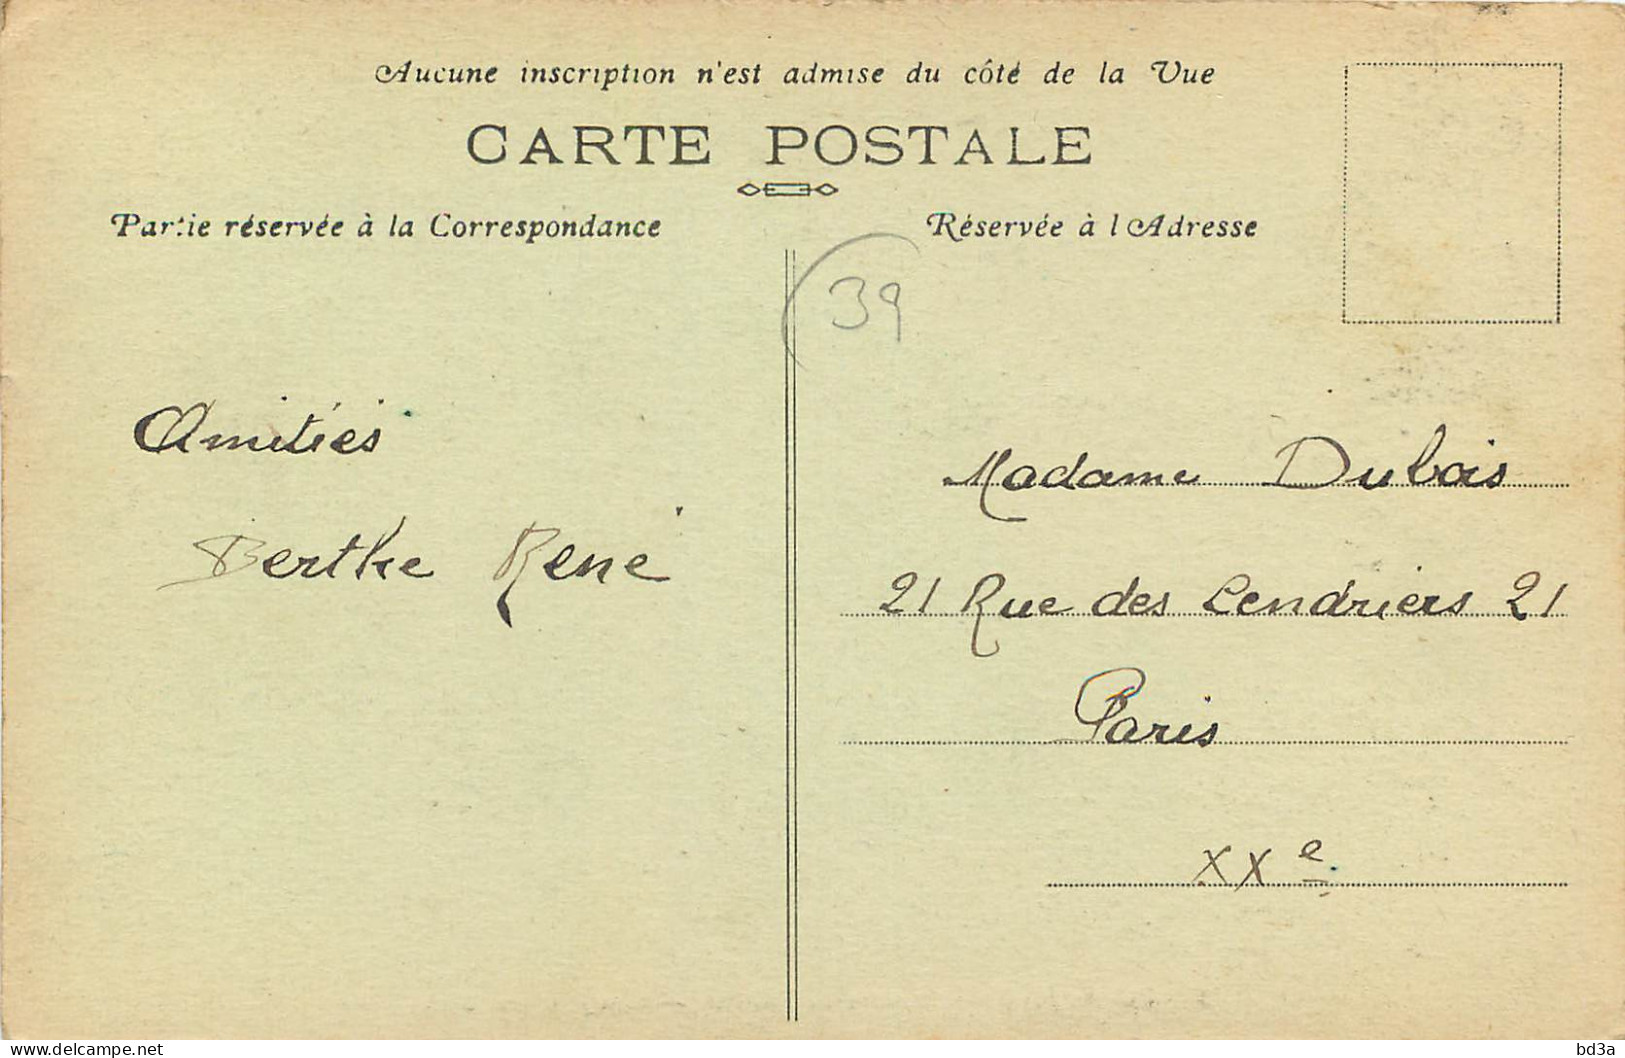 Aucune inscription n'est admise du côté de la Vue
CARTE POSTALE
Partie réservée à la Correspondance
Réservée à l'Adresse
39
Amitiés
Berthe René
Madame Dubois
21 Rue des Cendriers 21
Paris
XXe
www.delcampe.net
bd3a